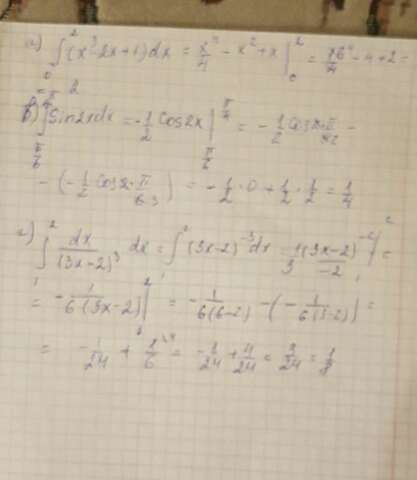 а) ∫₀² (x³ - 2x + 1)dx = x⁴/4 - x² + x |₀² = 16/4 - 4 + 2 -
= 2
∫_{π/6}^{π/4} Sin2xdx = -1/2 Cos2x |_{π/6}^{π/4} = -1/2 Cos 2·π/4 -
- (-1/2 Cos 2·π/6) = -1/2 · 0 + 1/2 · 1/2 = 1/4
г) ∫₁² dx/(3x-2)³ dx = ∫₁² (3x-2)⁻³ dx = 1/3 (3x-2)⁻²/-2 |₁² =
= -1/6(3x-2) |₁² = -1/6(6-2) - (-1/6(3-2)) =
= -1/24 + 1/6 = -1/24 + 4/24 = 3/24 = 1/8